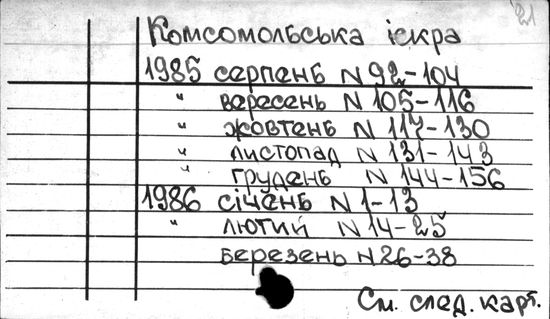 21
Комсомольська іскра
1985 серпень N 92-104
" вересень N 105-116
" жовтень N 117-130
" листопад N 131-143
" грудень N 144-156
1986 січень N 1-13
" лютий N 14-25
березень N 26-38
См. след. карт.